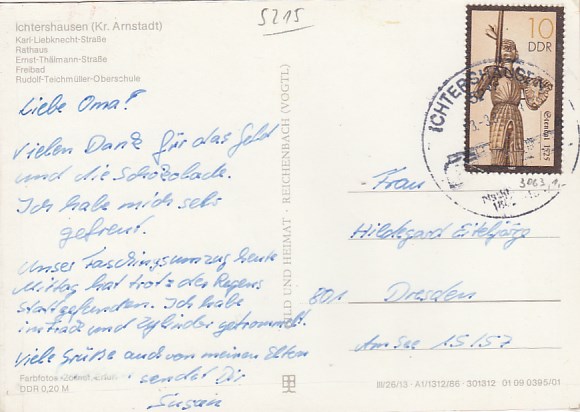 Ichtershausen (Kr. Arnstadt)
Karl-Liebknecht-Straße
Rathaus
Ernst-Thälmann-Straße
Freibad
Rudolf-Teichmüller-Oberschule
5215
Liebe Oma!
Vielen Dank für das Geld
und die Schokolade.
Ich habe mich sehr
gefreut.
Unser Faschingsumzug heute
Mittag hat trotz des Regens
stattgefunden. Ich habe
im Frack und Zylinder getrommelt.
Viele Grüße auch von meinen Eltern
sendet Dir
Susan
Farbfotos
DDR 0,20 M
BILD UND HEIMAT · REICHENBACH (VOGTL)
10
DDR
Stendal 1525
ICHTERSHAUSEN
3063
Frau
Hildegard Eiteljörg
801 Dresden
Am See 15/57
III/26/13 · A1/1312/86 · 301312 01 09 0395/01